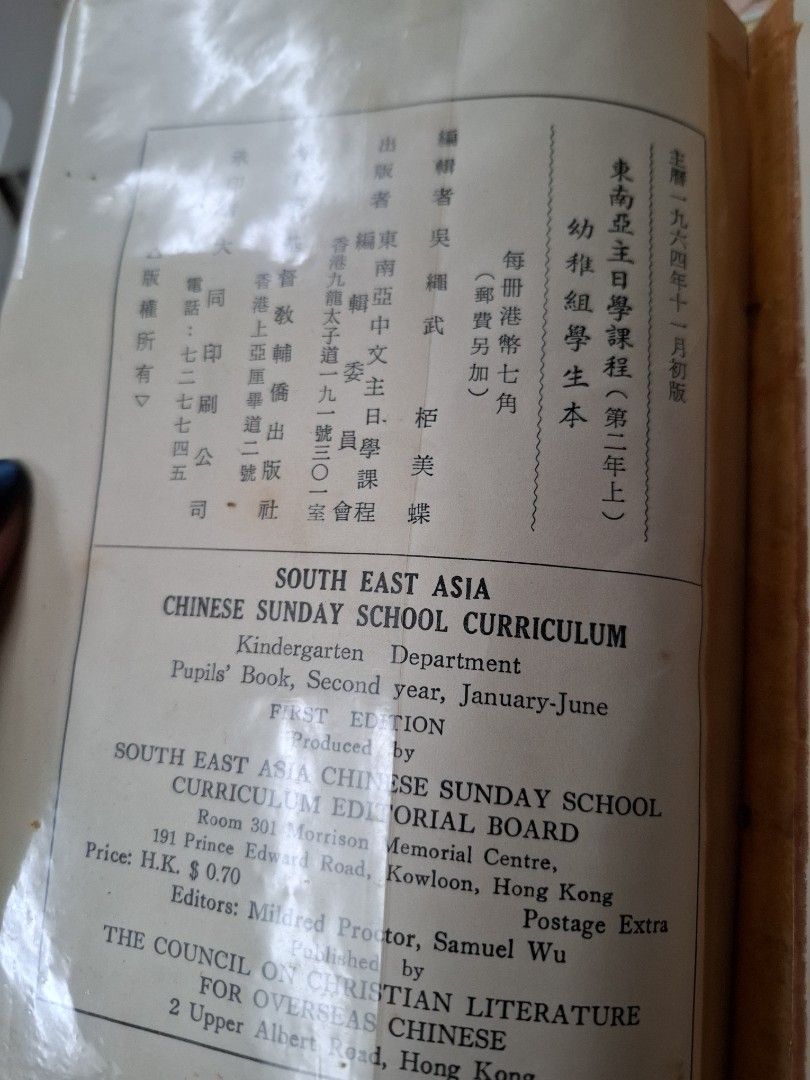 主曆一九六四年十一月初版
東南亞主日學課程（第二年上）
幼稚組學生本
每册港幣七角
（郵費另加）
編輯者 吳繩武 栢美蝶
出版者 東南亞中文主日學課程
編輯委員會
香港九龍太子道一九一號三〇一室
督教輔僑出版社
香港上亞厘畢道二號
大同印刷公司
電話：七二七七四五
版權所有▽
SOUTH EAST ASIA
CHINESE SUNDAY SCHOOL CURRICULUM
Kindergarten Department
Pupils' Book, Second year, January-June
FIRST EDITION
Produced by
SOUTH EAST ASIA CHINESE SUNDAY SCHOOL
CURRICULUM EDITORIAL BOARD
Room 301 Morrison Memorial Centre,
191 Prince Edward Road, Kowloon, Hong Kong
Price: H.K. $ 0.70 Postage Extra
Editors: Mildred Proctor, Samuel Wu
Published by
THE COUNCIL ON CHRISTIAN LITERATURE
FOR OVERSEAS CHINESE
2 Upper Albert Road, Hong Kong